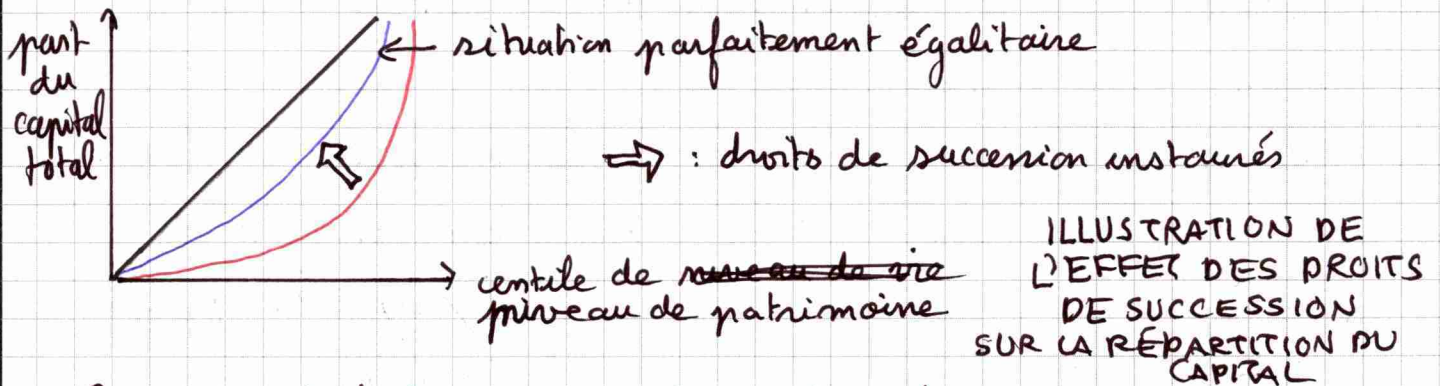 part
du
capital
total
situation parfaitement égalitaire
⇒ : droits de succession instaurés
centile de niveau de vie
niveau de patrimoine
ILLUSTRATION DE
L'EFFET DES DROITS
DE SUCCESSION
SUR LA RÉPARTITION DU
CAPITAL